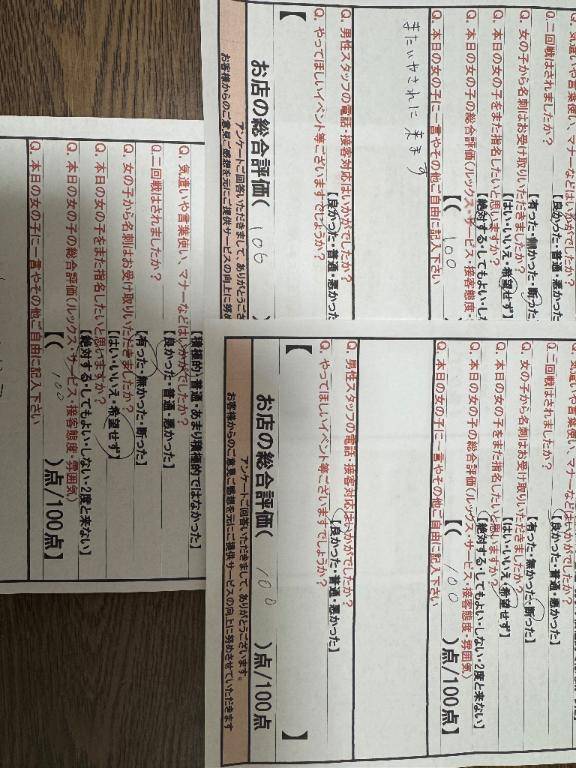 Q. 気遣いや言葉使い、マナーなどはいかがでしたか？
【良かった・普通・悪かった
Q.二回戦はされましたか？
【有った・無かった・断った
Q. 女の子から名刺はお受け取りいただきましたか？
【はい・いいえ・希望せず】
Q. 本日の女の子をまた指名したいと思いますか？
【絶対する・してもよい・し
Q. 本日の女の子の総合評価(ルックス・サービス・接客態度・
【( 100
Q. 本日の女の子に一言やその他ご自由に記入下さい
またいやされに来ます
Q. 男性スタッフの電話・接客対応はいかがでしたか？
【良かった・普通・悪かった
Q. やってほしいイベント等ございますでしょうか？
【
お店の総合評価( 106
アンケートご回答いただきまして、ありがとうござ
お客様からのご意見ご感想を元にご提供サービスの向上に努め
Q. 気遣いや言葉使い、マナーなどはいかがでしたか？
【良かった・普通・悪かった
Q.二回戦はされましたか？
【有った・無かった・断った】
Q. 女の子から名刺はお受け取りいただきましたか？
【はい・いいえ・希望せず】
Q. 本日の女の子をまた指名したいと思いますか？
【絶対する・してもよい・しない・2度と来ない】
Q. 本日の女の子の総合評価(ルックス・サービス・接客態度・雰囲気)
【( 100 )点/100点】
Q. 本日の女の子に一言やその他ご自由に記入下さい
Q. 男性スタッフの電話・接客対応はいかがでしたか？
【良かった・普通・悪かった】
Q. やってほしいイベント等ございますでしょうか？
【 】
お店の総合評価( 100 )点/100点
アンケートご回答いただきまして、ありがとうございます。
お客様からのご意見ご感想を元にご提供サービスの向上に努めさせていただきます
【積極的・普通・あまり積極的ではなかった】
Q. 気遣いや言葉使い、マナーなどはいかがでしたか？
【良かった・普通・悪かった】
Q.二回戦はされましたか？
【有った・無かった・断った】
Q. 女の子から名刺はお受け取りいただきましたか？
【はい・いいえ・希望せず】
Q. 本日の女の子をまた指名したいと思いますか？
【絶対する・してもよい・しない・2度と来ない】
Q. 本日の女の子の総合評価(ルックス・サービス・接客態度・雰囲気)
( 100 )点/100点】
Q. 本日の女の子に一言やその他ご自由に記入下さい